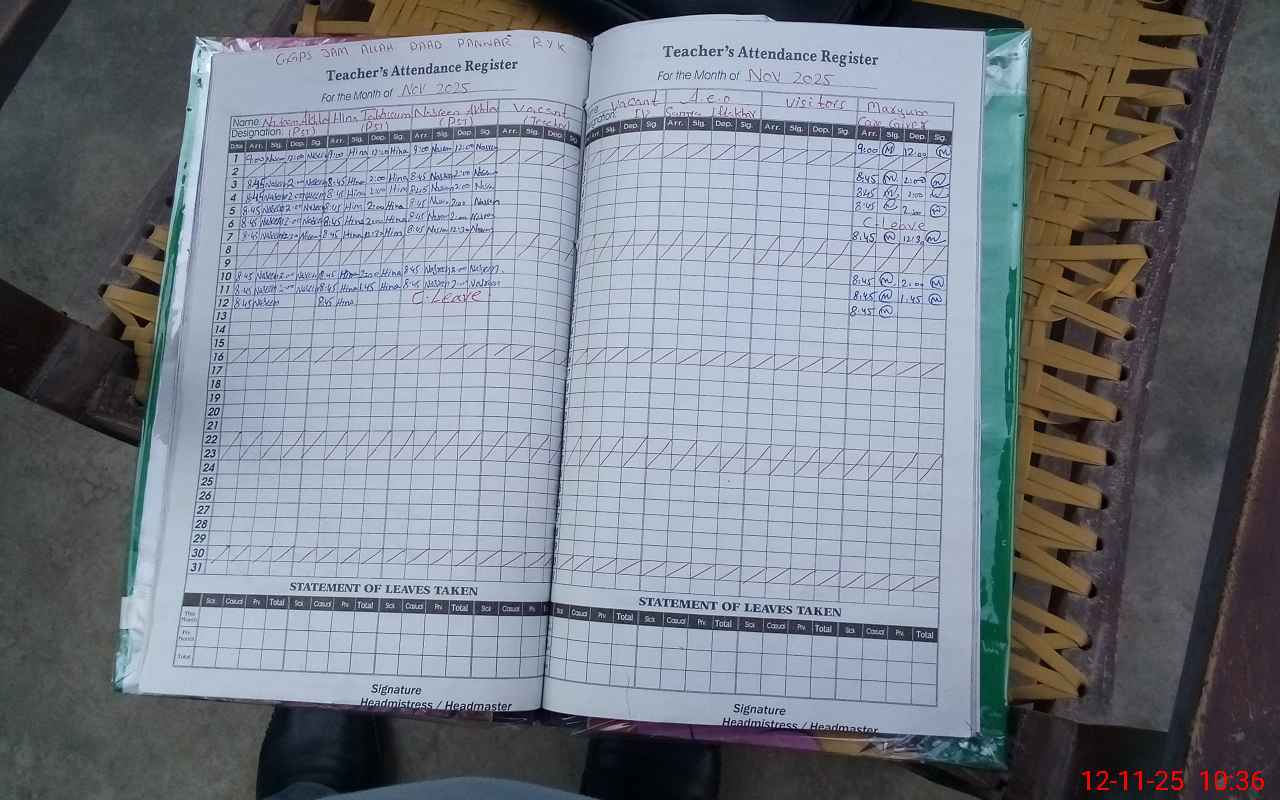 GGPS JAM ALLAH DAAD PANWAR RYK
Teacher's Attendance Register
For the Month of Nov 2025
Name: Hina Tabassum Nasreen Akhtar Vacant
Designation: (PST) (PST) (PST)
Date Arr. Sig. Dep. Sig. Arr. Sig. Dep. Sig. Arr. Sig. Dep. Sig. Arr. Sig. Dep. Sig.
1 9:00 12:00 9:00 Hina 12:00 Hina 9:00 12:00
2
3 8:45 2:00 8:45 Hina 2:00 Hina 8:45 2:00
4 8:45 2:00 8:45 Hina 2:00 Hina 8:45 2:00
5 8:45 2:00 8:45 Hina 2:00 Hina 8:45 2:00
6 8:45 2:00 8:45 Hina 2:00 Hina 8:45 2:00
7 8:45 8:45 Hina 12:30 Hina 8:45 12:30
8
9
10 8:45 Naseem 2:00 Naseem 8:45 Hina 2:00 Hina 8:45 2:00
11 8:45 Naseem 2:00 Naseem 8:45 Hina 1:45 Hina 8:45 2:00
12 8:45 Naseem 8:45 Hina C.Leave
13
14
15
16
17
18
19
20
21
22
23
24
25
26
27
28
29
30
31
STATEMENT OF LEAVES TAKEN
Sick Casual Prv. Total Sick Casual Prv. Total Sick Casual Prv. Total Sick Casual Prv.
This Month
Prv. Month
Total
Signature
Headmistress / Headmaster
Teacher's Attendance Register
For the Month of Nov 2025
Vacant A.e.o Visitors Maryum
Iftekhar Care giver
Arr. Sig. Dep. Sig. Arr. Sig. Dep. Sig. Arr. Sig. Dep. Sig. Arr. Sig. Dep. Sig.
9:00 M 12:00 M
8:45 M 2:00 M
8:45 M 2:00 M
8:45 M 2:00 M
C.Leave
8:45 M 12:30 M
8:45 M 2:00 M
8:45 M 1:45 M
8:45 M
STATEMENT OF LEAVES TAKEN
Sick Casual Prv. Total Sick Casual Prv. Total Sick Casual Prv. Total Sick Casual Prv. Total
Signature
Headmistress / Headmaster
12-11-25 10:36